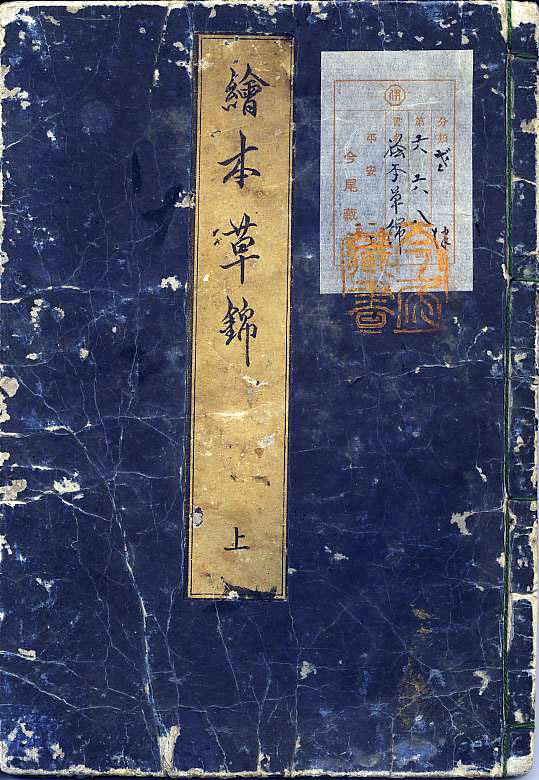 繪本草錦
上
分類
第六六八
書
絵本草錦
平安
今尾蔵
今尾
蔵書